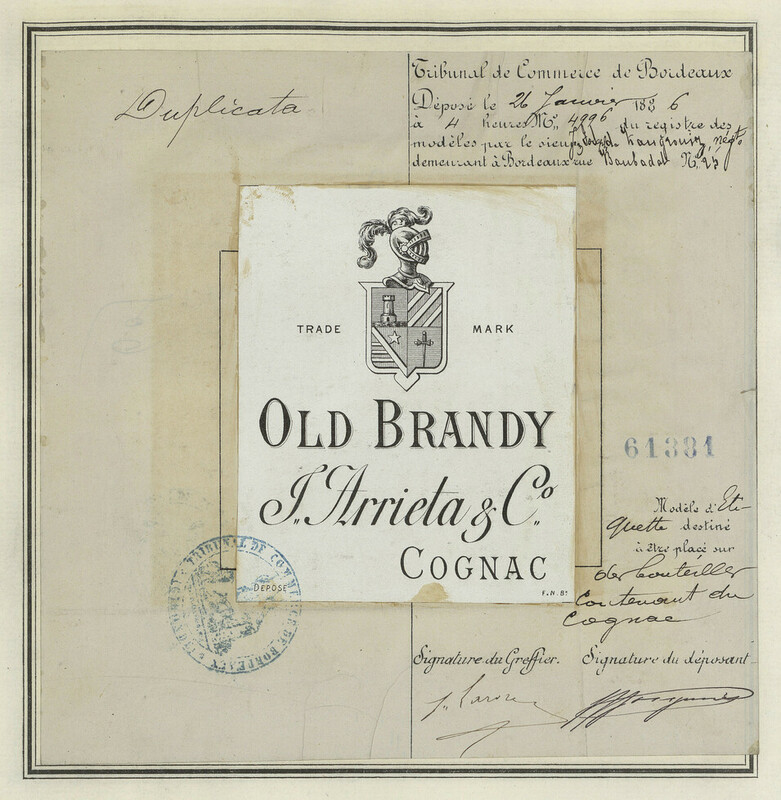 Duplicata
Tribunal de Commerce de Bordeaux
Déposé le 26 Janvier 1886
à 4 heures Nº 4996 du registre des
modèles par le sieur négt
demeurant à Bordeaux rue Nº 25
TRADE MARK
OLD BRANDY
J. Arrieta & Co.
COGNAC
DÉPOSÉ
F.N. Bx
61381
Modèle d'Eti-
quette destiné
à être placé sur
des bouteilles
contenant du
cognac
TRIBUNAL DE COMMERCE DE BORDEAUX
Signature du Greffier. Signature du déposant